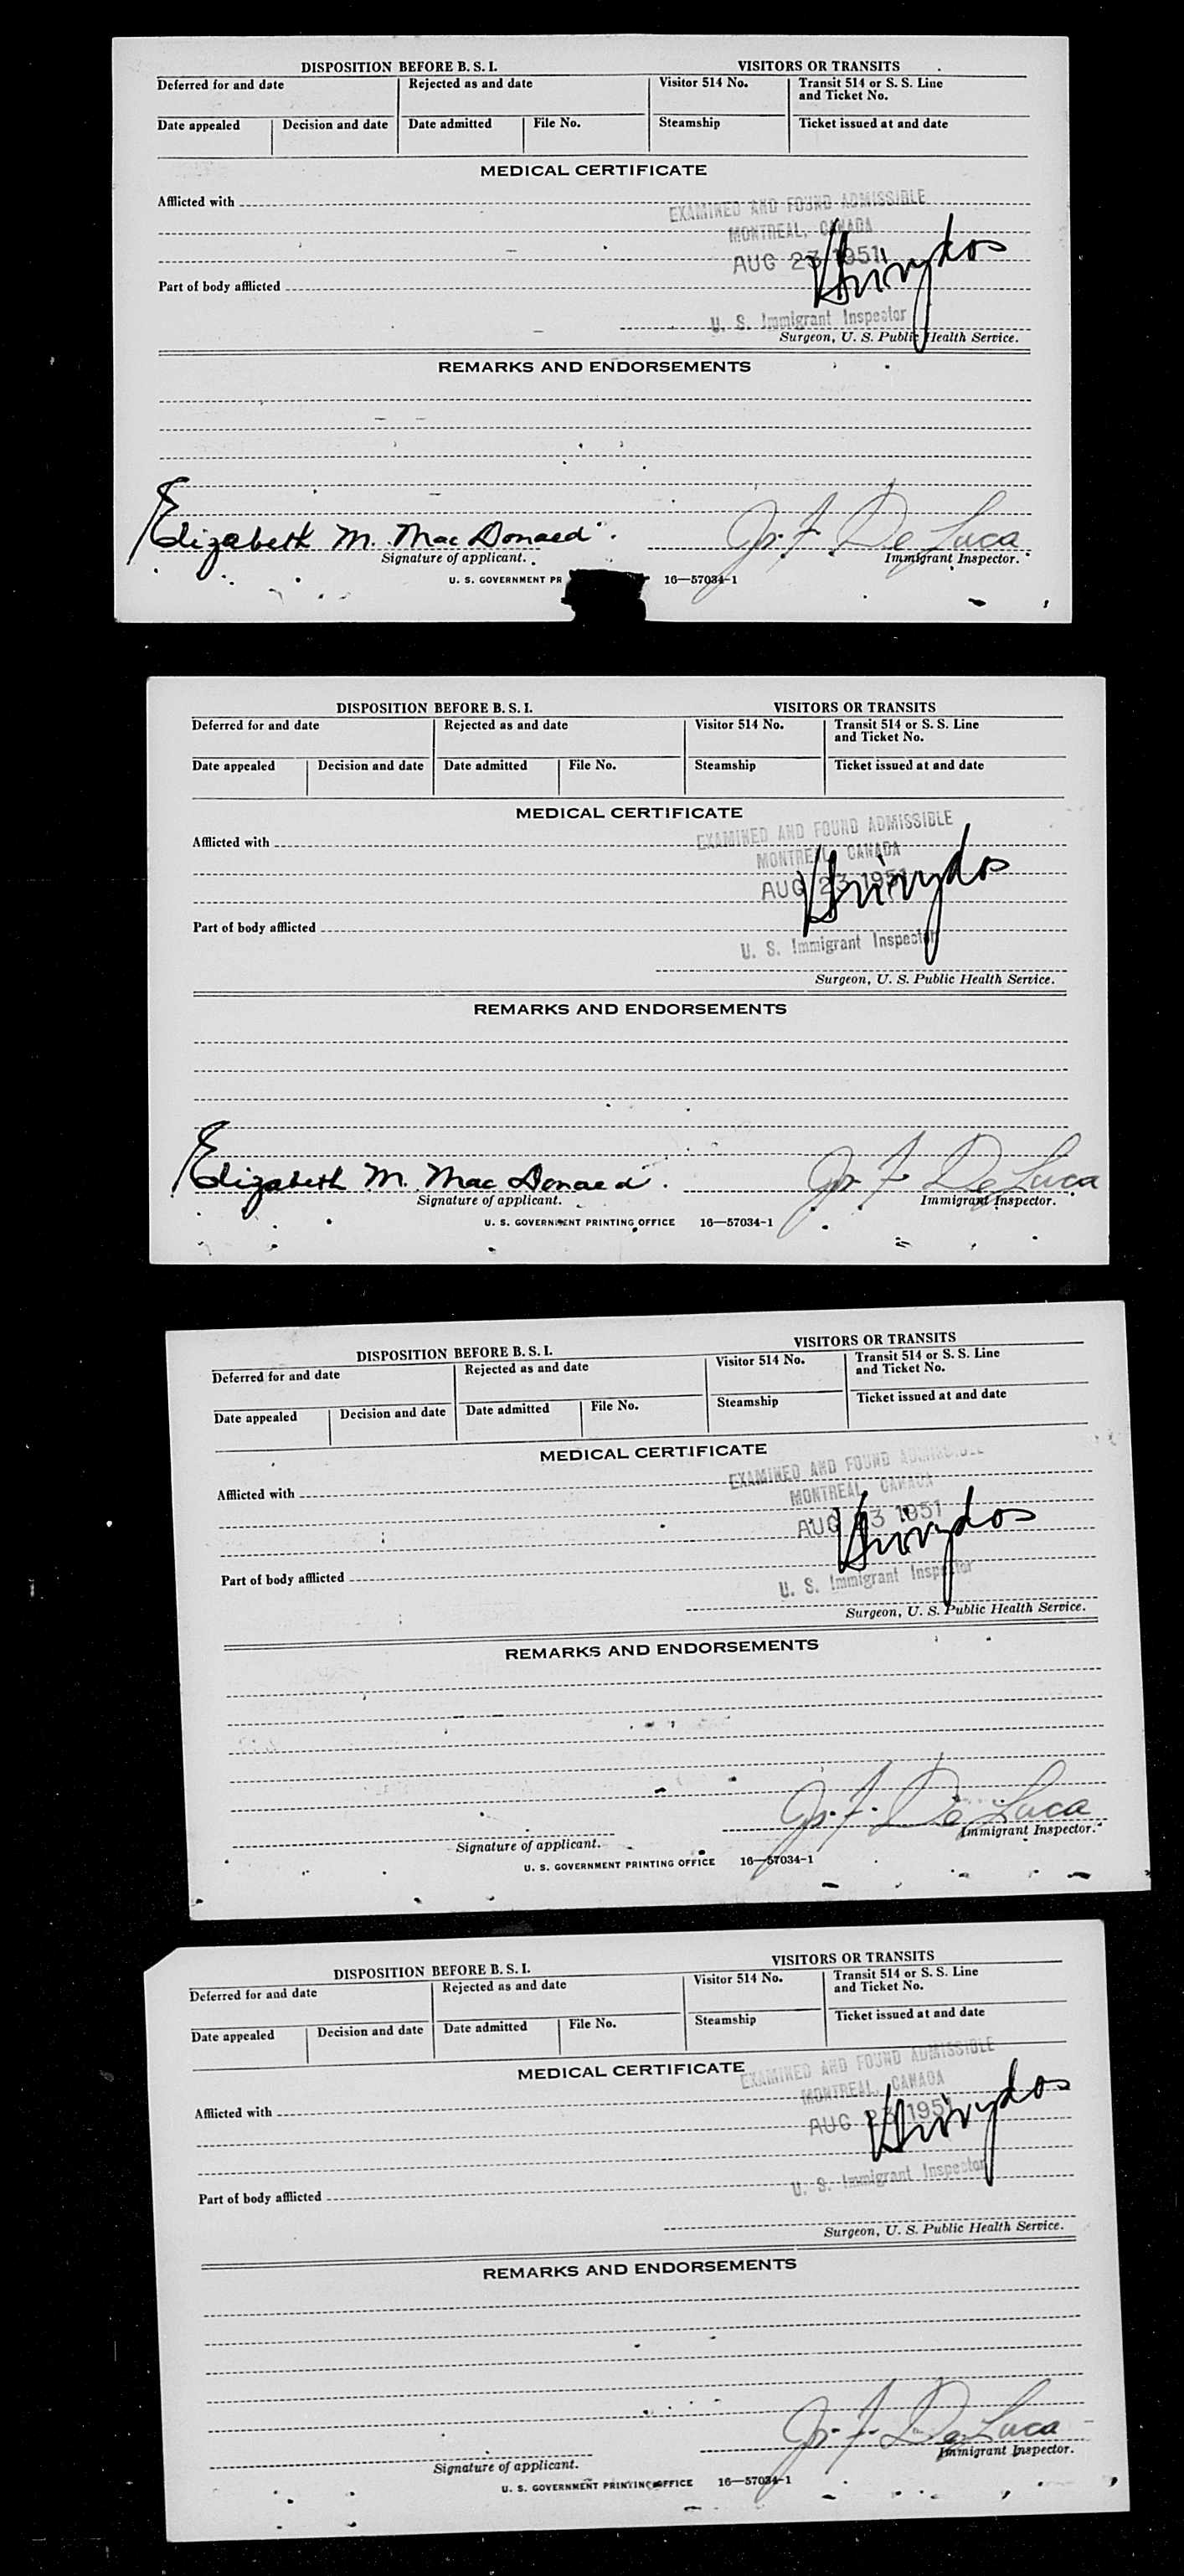 DISPOSITION BEFORE B. S. I. VISITORS OR TRANSITS
Deferred for and date Rejected as and date Visitor 514 No. Transit 514 or S. S. Line
and Ticket No.
Date appealed Decision and date Date admitted File No. Steamship Ticket issued at and date
MEDICAL CERTIFICATE
Afflicted with
EXAMINED AND FOUND ADMISSIBLE
MONTREAL, CANADA
AUG 23 1951
Part of body afflicted
U. S. Immigrant Inspector
Surgeon, U. S. Public Health Service.
REMARKS AND ENDORSEMENTS
Elizabeth M. MacDonald. De Luca
Signature of applicant. Immigrant Inspector.
U. S. GOVERNMENT PR 16—57034-1
DISPOSITION BEFORE B. S. I. VISITORS OR TRANSITS
Deferred for and date Rejected as and date Visitor 514 No. Transit 514 or S. S. Line
and Ticket No.
Date appealed Decision and date Date admitted File No. Steamship Ticket issued at and date
MEDICAL CERTIFICATE
EXAMINED AND FOUND ADMISSIBLE
Afflicted with
MONTREAL, CANADA
AUG 23 1951
Part of body afflicted
U. S. Immigrant Inspector
Surgeon, U. S. Public Health Service.
REMARKS AND ENDORSEMENTS
Elizabeth M. MacDonald. De Luca
Signature of applicant. Immigrant Inspector.
U. S. GOVERNMENT PRINTING OFFICE 16—57034-1
DISPOSITION BEFORE B. S. I. VISITORS OR TRANSITS
Deferred for and date Rejected as and date Visitor 514 No. Transit 514 or S. S. Line
and Ticket No.
Date appealed Decision and date Date admitted File No. Steamship Ticket issued at and date
MEDICAL CERTIFICATE
EXAMINED AND FOUND ADMISSIBLE
Afflicted with
MONTREAL, CANADA
AUG 23 1951
Part of body afflicted
U. S. Immigrant Inspector
Surgeon, U. S. Public Health Service.
REMARKS AND ENDORSEMENTS
De Luca
Signature of applicant. Immigrant Inspector.
U. S. GOVERNMENT PRINTING OFFICE 16—57034-1
DISPOSITION BEFORE B. S. I. VISITORS OR TRANSITS
Deferred for and date Rejected as and date Visitor 514 No. Transit 514 or S. S. Line
and Ticket No.
Date appealed Decision and date Date admitted File No. Steamship Ticket issued at and date
MEDICAL CERTIFICATE
EXAMINED AND FOUND ADMISSIBLE
MONTREAL, CANADA
Afflicted with
AUG 23 1951
Part of body afflicted
U. S. Immigrant Inspector
Surgeon, U. S. Public Health Service.
REMARKS AND ENDORSEMENTS
De Luca
Signature of applicant. Immigrant Inspector.
U. S. GOVERNMENT PRINTING OFFICE 16—57034-1